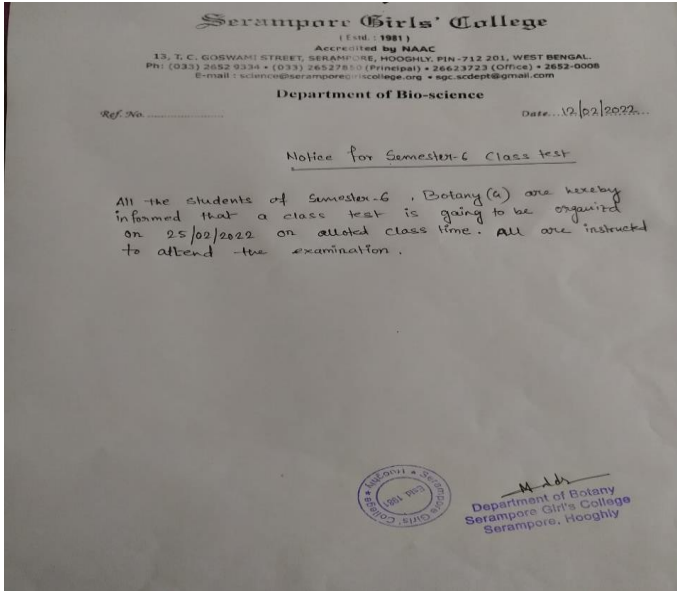 Serampore Girls' College
( Estd. : 1981 )
Accredited by NAAC
13, T. C. GOSWAMI STREET, SERAMPORE, HOOGHLY. PIN-712 201, WEST BENGAL.
Ph: (033) 2652 9334 • (033) 26527850 (Principal) • 26623723 (Office) • 2652-0008
E-mail : science@seramporegirlscollege.org • sgc.scdept@gmail.com
Department of Bio-science
Ref. No. ........................
Date...12/02/2022...
Notice for Semester-6 Class test
All the students of Semester-6, Botany (G) are hereby
informed that a class test is going to be organizd
on 25/02/2022 on alloted class time. All are instructed
to attend the examination.
Serampore Girls' College • Hooghly •
Estd 1981
Department of Botany
Serampore Girl's College
Serampore, Hooghly